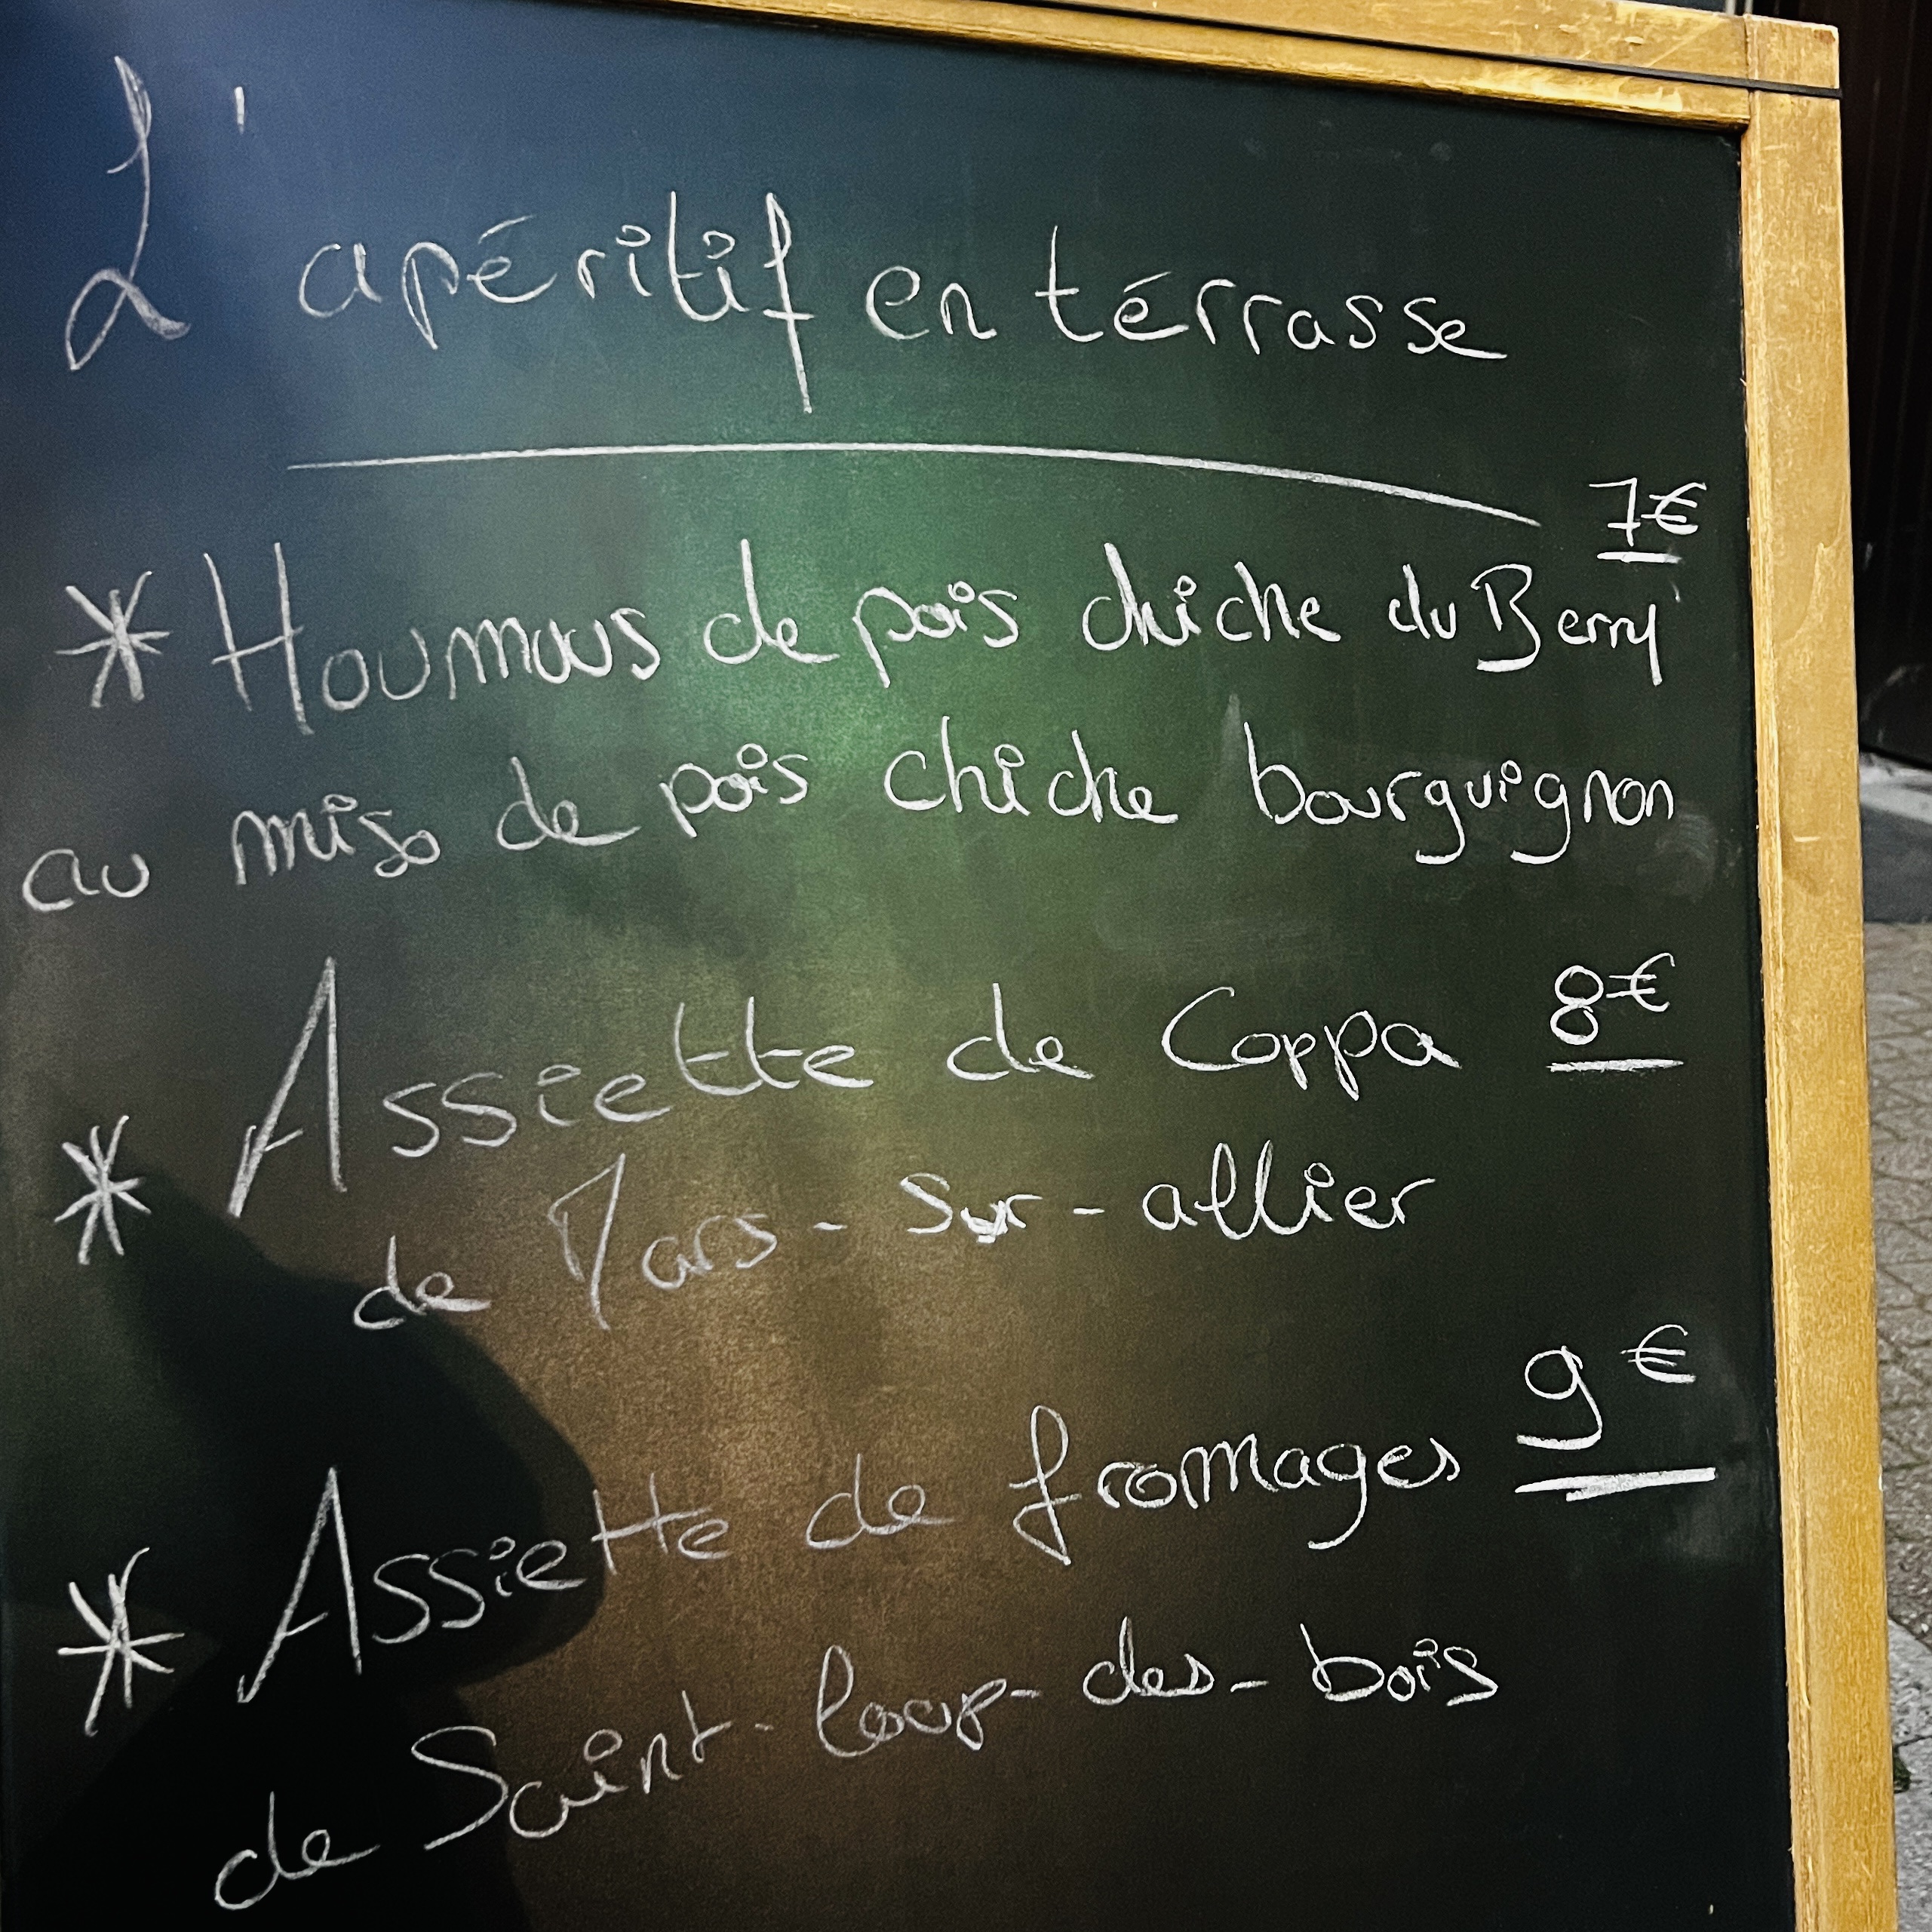 L'apéritif en térrasse
7€
* Houmous de pois chiche du Berry
au miso de pois chiche bourguignon
* Assiette de Coppa 8€
de Mars-sur-allier
* Assiette de fromages 9€
de Saint-loup-des-bois